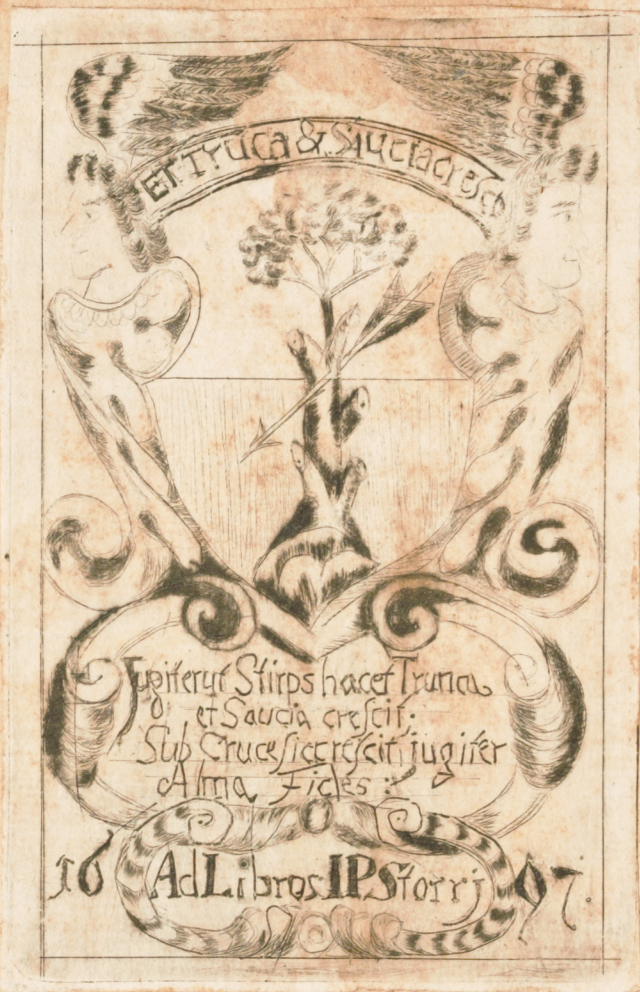 Et Truca & Siucia cresco
Jugiter ut Stirps hacet Trunca
et Saucia crescit.
Sub Cruce sic crescit, jugiter
Alma Fides :
16 Ad Libros IPStorrj 97.